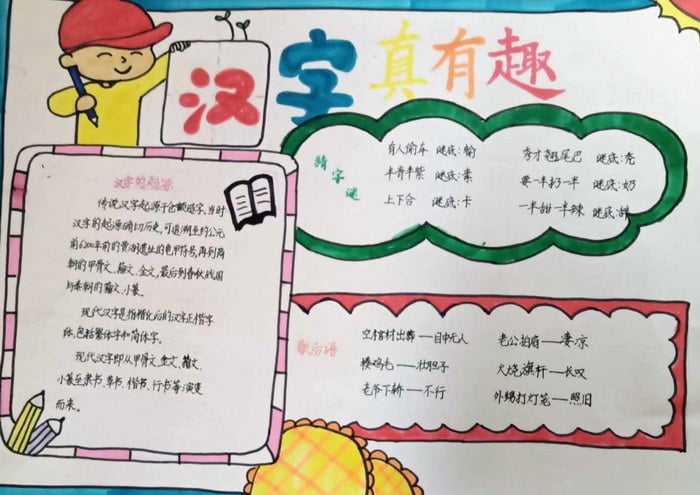 汉字真有趣
汉字的起源
传说汉字起源于仓颉造字,当时
汉字的起源确切历史,可追溯至约公元
前6200年前的贾湖遗址的龟甲符号,再到商
朝的甲骨文、籀文、金文,最后到春秋战国
与秦朝的籀文、小篆。
现代汉字是指楷化后的汉字正楷字
练,包括繁体字和简体字。
现代汉字即从甲骨文、金文、籀文、
小篆至隶书、草书、楷书、行书等演变
而来。
猜字谜
有人偷车 谜底:输
半青半紫 谜底:素
上下合 谜底:卡
夸才翘尾巴 谜底:亮
要一半扔一半 谜底:奶
一半甜一半辣 谜底:辞
歇后语
空棺材出葬——目中无人
揍鸡毛——壮胆子
老爷下轿——不行
老公拍扇——凄凉
火烧旗杆——长叹
外甥打灯笼——照旧